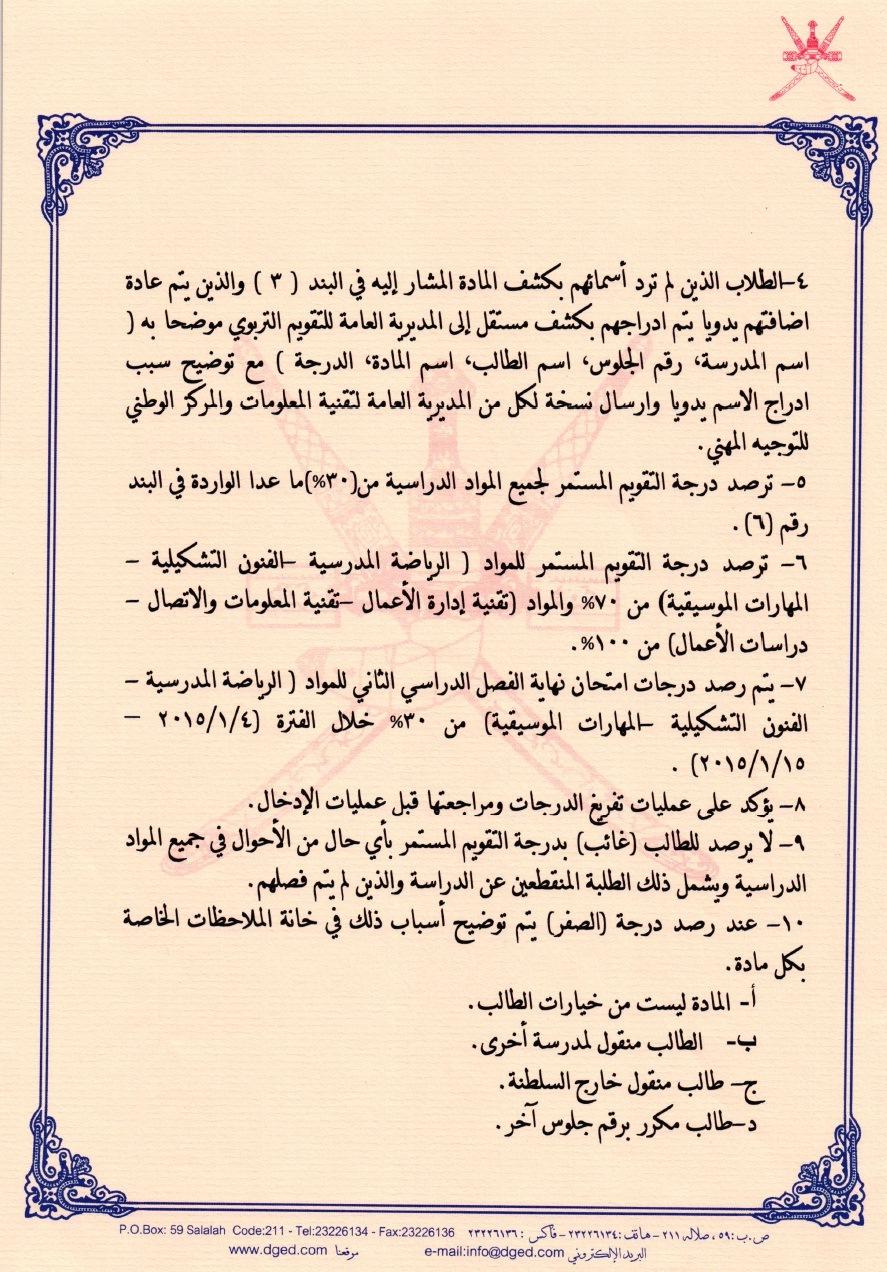 ٤-الطلاب الذين لم ترد أسمائهم بكشف المادة المشار إليه في البند ( ٣ ) والذين يتم عادة
اضافتهم يدويا يتم ادراجهم بكشف مستقل إلى المديرية العامة للتقويم التربوي موضحا به (
اسم المدرسة، رقم الجلوس، اسم الطالب، اسم المادة، الدرجة ) مع توضيح سبب
ادراج الاسم يدويا وارسال نسخة لكل من المديرية العامة لتقنية المعلومات والمركز الوطني
للتوجيه المهني.
٥- ترصد درجة التقويم المستمر لجميع المواد الدراسية من(٣٠%)ما عدا الواردة في البند
رقم (٦) .
٦- ترصد درجة التقويم المستمر للمواد ( الرياضة المدرسية –الفنون التشكيلية –
المهارات الموسيقية) من ٧٠% والمواد (تقنية إدارة الأعمال –تقنية المعلومات والاتصال –
دراسات الأعمال) من ١٠٠%.
٧- يتم رصد درجات امتحان نهاية الفصل الدراسي الثاني للمواد ( الرياضة المدرسية –
الفنون التشكيلية –المهارات الموسيقية) من ٣٠% خلال الفترة (٢٠١٥/١/٤ –
٢٠١٥/١/١٥) .
٨- يؤكد على عمليات تفريغ الدرجات ومراجعتها قبل عمليات الإدخال.
٩- لا يرصد للطالب (غائب) بدرجة التقويم المستمر بأي حال من الأحوال في جميع المواد
الدراسية ويشمل ذلك الطلبة المنقطعين عن الدراسة والذين لم يتم فصلهم.
١٠- عند رصد درجة (الصفر) يتم توضيح أسباب ذلك في خانة الملاحظات الخاصة
بكل مادة.
أ- المادة ليست من خيارات الطالب.
ب- الطالب منقول لمدرسة أخرى.
ج- طالب منقول خارج السلطنة.
د-طالب مكرر برقم جلوس آخر.
ص.ب:٥٩ ، صلاله ٢١١ - هاتف : ٢٣٢٢٦١٣٤ - فاكس : ٢٣٢٢٦١٣٦ P.O.Box: 59 Salalah Code:211 - Tel:23226134 - Fax:23226136
البريد الإلكتروني e-mail:info@dged.com موقعنا www.dged.com